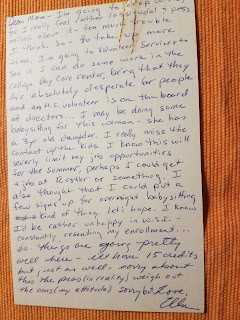 Dear Mom - I'm going to drop
for I really feel
missin about it - too much trouble
I think. So - to take up more
time, I'm going to Volunteer Services to
see if I can do some work in the
college Day Care Center, being that they
are absolutely desperate for people
and anth. volunteer is on the board
of directors... I may be doing some
babysitting for this woman - she has
a 3yr old daughter. I really miss the
contact w/ the kids. I know this will
severly limit my job opportunities
for the summer, perhaps I could get
a job at Rostler or something. I
also thought that I could put a
few signs up for overnight babysitting
kind of thing. Let's hope. I know
I'd be rather unhappy in W.S.I. -
constantly resenting my enrollment...
so things are going pretty
well here - I'll have 15 credits
but, just as well - sorry about
this the pros (in reality) weigh out
the cons (my attitude) somy
Love,
Ella